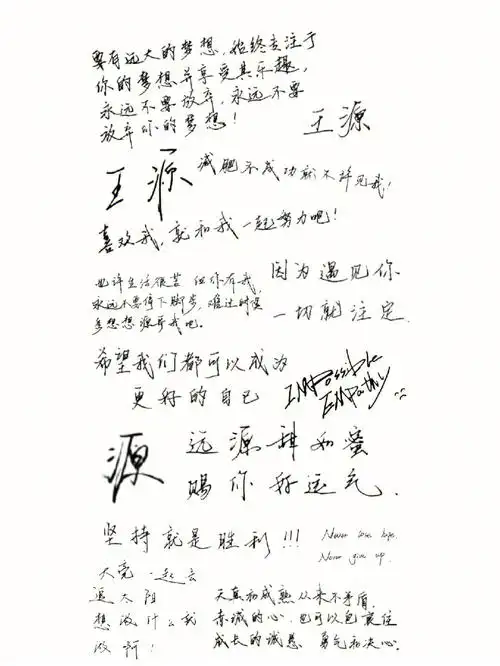 要有远大的梦想，始终专注于
你的梦想并享受其乐趣，
永远不要放弃，永远不要
放弃你的梦想！
王源
王源
减肥不成功就不许见我！
喜欢我，就和我一起努力吧！
也许生活很苦 但你有我，
永远不要停下脚步，难过时候
多想想源哥我吧。
因为遇见你
一切就注定
希望我们都可以成为
更好的自己
IMPossible
EMPathy
源
远源甜如蜜
赐你好运气.
坚持就是胜利!!!
Never lose hope.
Never give up.
天亮一起去
追太阳
想做什么就
做啊!
天真和成熟从来不矛盾
赤诚的心，也可以包裹住
成长的诚恳 勇气和决心.